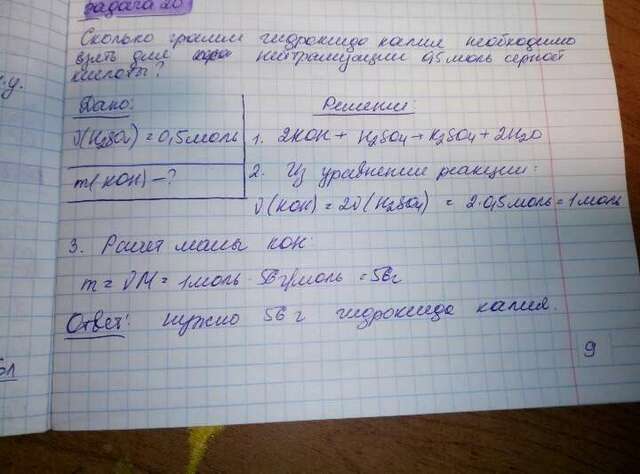 Задача 20
Сколько грамм гидроксида калия необходимо
взять для нейтрализации 0,5 моль серной
кислоты?
Дано:
Решение:
ν(H2SO4) = 0,5 моль
1. 2KOH + H2SO4 → K2SO4 + 2H2O
m(KOH) - ?
2. Из уравнения реакции:
ν(KOH) = 2ν(H2SO4) = 2·0,5 моль = 1 моль
3. Расчет массы KOH:
m = νM = 1 моль · 56 г/моль = 56 г
Ответ: нужно 56 г гидроксида калия.
9